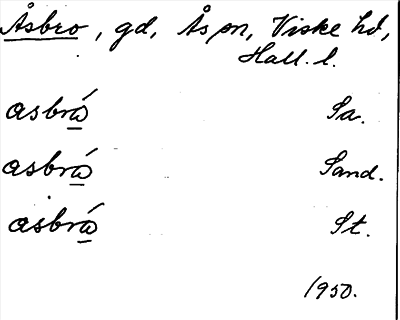 Åsbro, gd, Ås sn, Viske hd,
Hall. l.
asbrá̱ Sa.
asbrá̱ Sand.
asbrá̱ St.
1950.